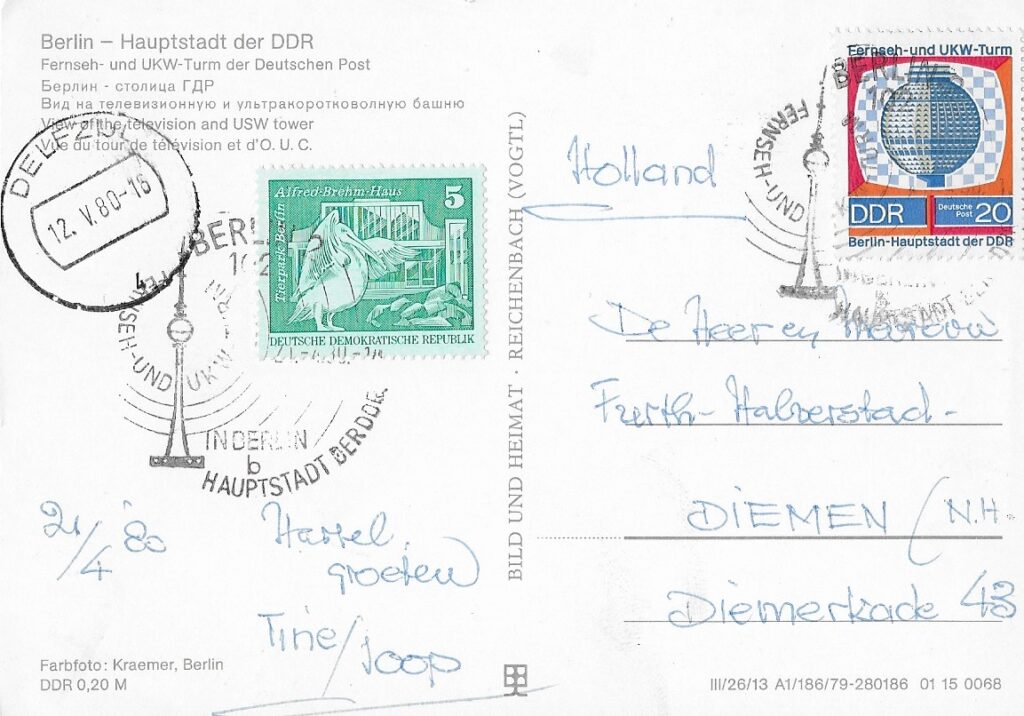 Berlin – Hauptstadt der DDR
Fernseh- und UKW-Turm der Deutschen Post
Берлин - столица ГДР
Вид на телевизионную и ультракоротковолную башню
View of the television and USW tower
Vue du tour de télévision et d'O. U. C.
DELFZIJL
12. V. 80-16
4
Alfred-Brehm-Haus
5
Tierpark Berlin
DEUTSCHE DEMOKRATISCHE REPUBLIK
BERLIN
102
FERNSEH-UND
UKW-
21.-4.80.-
IN BERLIN
b
HAUPTSTADT DER DDR
21/4 '80
Hartel.
groeten
Tine/Joop
Farbfoto: Kraemer, Berlin
DDR 0,20 M
BILD UND HEIMAT · REICHENBACH (VOGTL)
Fernseh-und UKW-Turm
DDR
Deutsche
Post
20
Berlin-Hauptstadt der DDR
BERLIN
102
FERNSEH-UND
b
HAUPTSTADT DER
Holland
De Heer en Mevrouw
Furth-Halverstad-
DIEMEN (N.H.
Diemerkade 43
III/26/13 A1/186/79-280186 01 15 0068